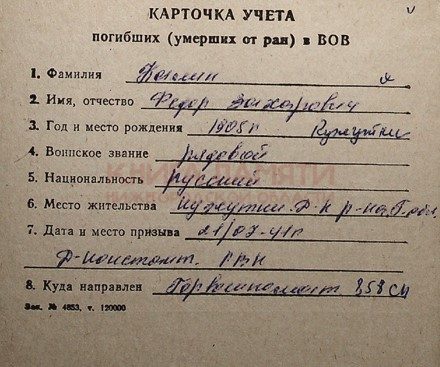 КАРТОЧКА УЧЕТА
погибших (умерших от ран) в ВОВ
1. Фамилия
2. Имя, отчество Федор Захарович
3. Год и место рождения 1905г Кужутки
4. Воинское звание рядовой
КНИГА ПАМЯТИ
5. Национальность русский
6. Место жительства Кужутки Д-К р-на, Г. обл.
7. Дата и место призыва 21/07-41г
Д-Констант. РВК
8. Куда направлен 358 СП
Зак. № 4853, т. 120000